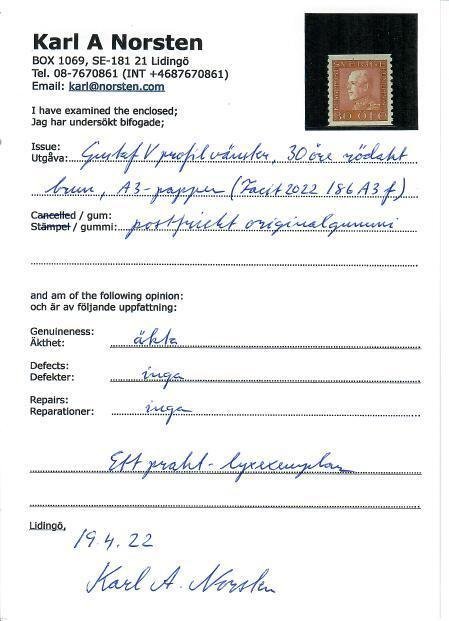 Karl A Norsten
BOX 1069, SE-181 21 Lidingö
Tel. 08-7670861 (INT +4687670861)
Email: karl@norsten.com
SVERIGE
30 ÖRE
I have examined the enclosed;
Jag har undersökt bifogade;
Issue:
Utgåva: Gustaf V profil vänster, 30 öre rödakt
brun, A3-papper (Facit 2022 186 A3 f)
Cancelled / gum:
Stämpel / gummi: postfriskt originalgummi
and am of the following opinion:
och är av följande uppfattning:
Genuineness:
Äkthet: äkta
Defects:
Defekter: inga
Repairs:
Reparationer: inga
Ett prakt-lyxexemplar
Lidingö,
19.4.22
Karl A. Norsten